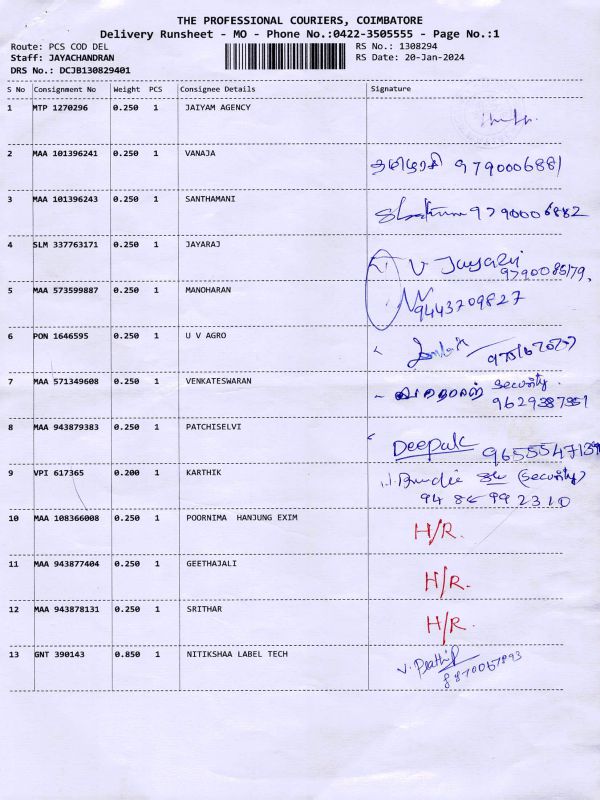 THE PROFESSIONAL COURIERS, COIMBATORE
Delivery Runsheet - MO - Phone No.:0422-3505555 - Page No.:1
Route: PCS COD DEL RS No.: 1308294
Staff: JAYACHANDRAN RS Date: 20-Jan-2024
DRS No.: DCJB130829401
S No Consignment No Weight PCS Consignee Details Signature
1 MTP 1270296 0.250 1 JAIYAM AGENCY
2 MAA 101396241 0.250 1 VANAJA 9790006881
3 MAA 101396243 0.250 1 SANTHAMANI 9790006882
4 SLM 337763171 0.250 1 JAYARAJ V Jayaraj
9790085179,
5 MAA 573599887 0.250 1 MANOHARAN 9443709827
6 PON 1646595 0.250 1 U V AGRO
7 MAA 571349608 0.250 1 VENKATESWARAN Security.
9629387351
8 MAA 943879383 0.250 1 PATCHISELVI Deepak 9655547139
9 VPI 617365 0.200 1 KARTHIK (Security)
94 86 99 2310
10 MAA 108366008 0.250 1 POORNIMA HANJUNG EXIM H/R.
11 MAA 943877404 0.250 1 GEETHAJALI H/R.
12 MAA 943878131 0.250 1 SRITHAR H/R.
13 GNT 390143 0.850 1 NITIKSHAA LABEL TECH V. Prathip
8870067893